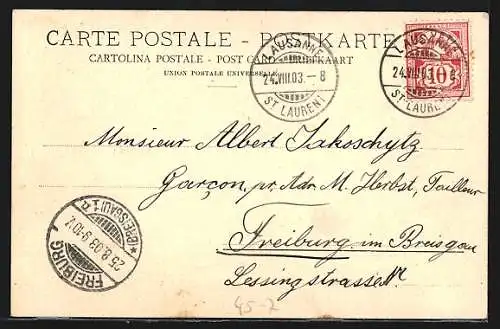 CARTE POSTALE - POSTKARTE
CARTOLINA POSTALE - POST CARD - BRIEFKAART
UNION POSTALE UNIVERSELLE
LAUSANNE
24.VIII.03.–8
ST LAURENT
LAUSANNE
24.VIII.03.–8
ST LAURENT
10
Monsieur Albert Jakoschytz
Garçon, pr. Adr. M. Herbst, Tailleur
Freiburg im Breisgau
Lessingstrasse
FREIBURG
25.8.03.9-10V.
(BREISGAU) 1
45-2